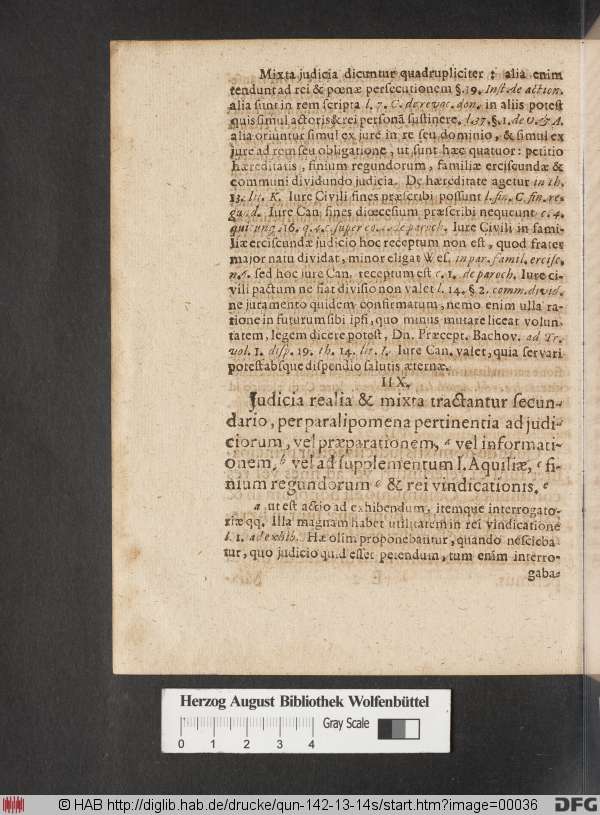 Mixta judicia dicuntur quadrupliciter : alia enim
tendunt ad rei & pœnæ persecutionem §. 19. Inst. de action.
alia sunt in rem scripta l. 7. C. de revoc. don. in aliis potest
quis simul actoris & rei personã sustinere. l. 37. §. 1. de O. & A.
alia oriuntur simul ex jure in re seu dominio, & simul ex
jure ad rem seu obligatione, ut sunt hæc quatuor: petitio
hæreditatis, finium regundorum, familiæ erciscundæ &
communi dividundo judicia. De hæreditate agetur in th.
13. lit. K. Iure Civili fines præscribi possunt l. fin. C. fin. re-
gund. Iure Can. fines diœcesium præscribi nequeunt c. 4.
16. q. super de paroch. Iure Civili in fami-
liæ erciscundæ judicio hoc receptum non est, quod frater
major natu dividat, minor eligat in par. famil. ercisc.
n. 1. sed hoc jure Can. receptum est c. 1. de paroch. Iure ci-
vili pactum ne fiat divisio non valet l. 14. §. 2. comm. divid.
ne juramento quidem confirmatum, nemo enim ulla ra-
tione in futurum sibi ipsi, quo minus mutare liceat volun-
tatem, legem dicere potest, Dn. Præcept. Bachov. ad Tr.
vol. 1. disp. 19. th. 14. lit. f. Iure Can. valet, quia servari
potest absque dispendio salutis æternæ.
IIX.
Judicia realia & mixta tractantur secun-
dario, per paralipomena pertinentia ad judi-
ciorum, vel præparationem, a vel informati-
onem, b vel ad supplementum l. Aquiliæ, c fi-
nium regundorum d & rei vindicationis. e
a. ut est actio ad exhibendum, itemque interrogato-
riæ qq. Illa magnam habet utilitatem in rei vindicatione
l. 1. ad exhib. Hæ olim proponebantur, quando nescieba-
tur, quo judicio quid esset petendum, tum enim interro-
gaba-
Herzog August Bibliothek Wolfenbüttel
Gray Scale
0 1 2 3 4
© HAB http://diglib.hab.de/drucke/qun-142-13-14s/start.htm?image=00036
DFG